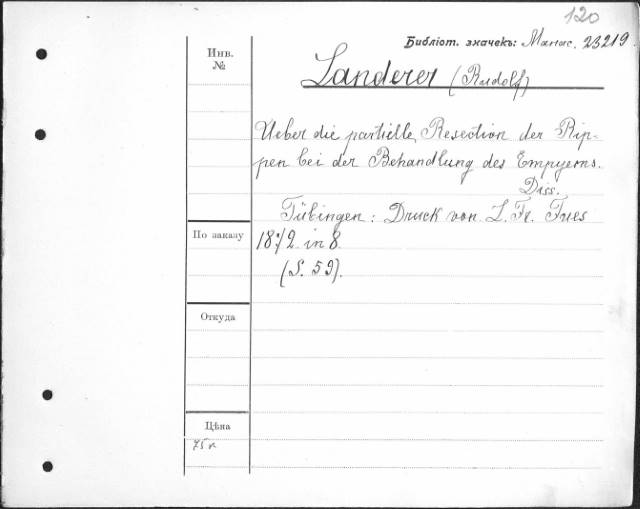 120
Библіот. значекъ: Манас. 23219.
Инв.
№
Landerer (Rudolf)
Ueber die partielle Resection der Rip-
pen bei der Behandlung des Empyems.
Diss.
Tübingen: Druck von L. Fr. Fues
По заказу
in 8
(S. 59).
Откуда
Цѣна